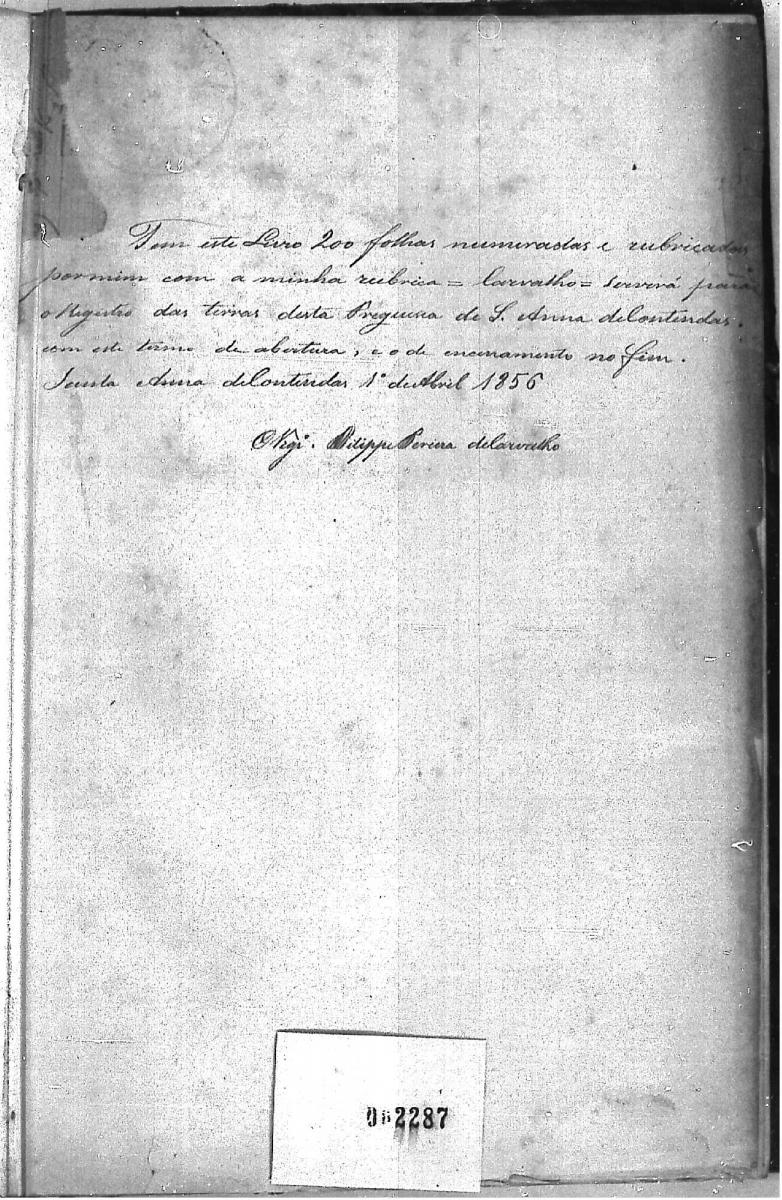 Tem este Livro 200 folhas numeradas e rubricadas
por mim com a minha rubrica = Carvalho = Servirá para
o Registro das terras desta Freguesia de S. Anna de Contendas.
com este termo de abertura, e o de encerramento no fim.
Santa Anna de Contendas 1º de Abril 1856
O Vigº. Philippe Pereira de Carvalho
2287